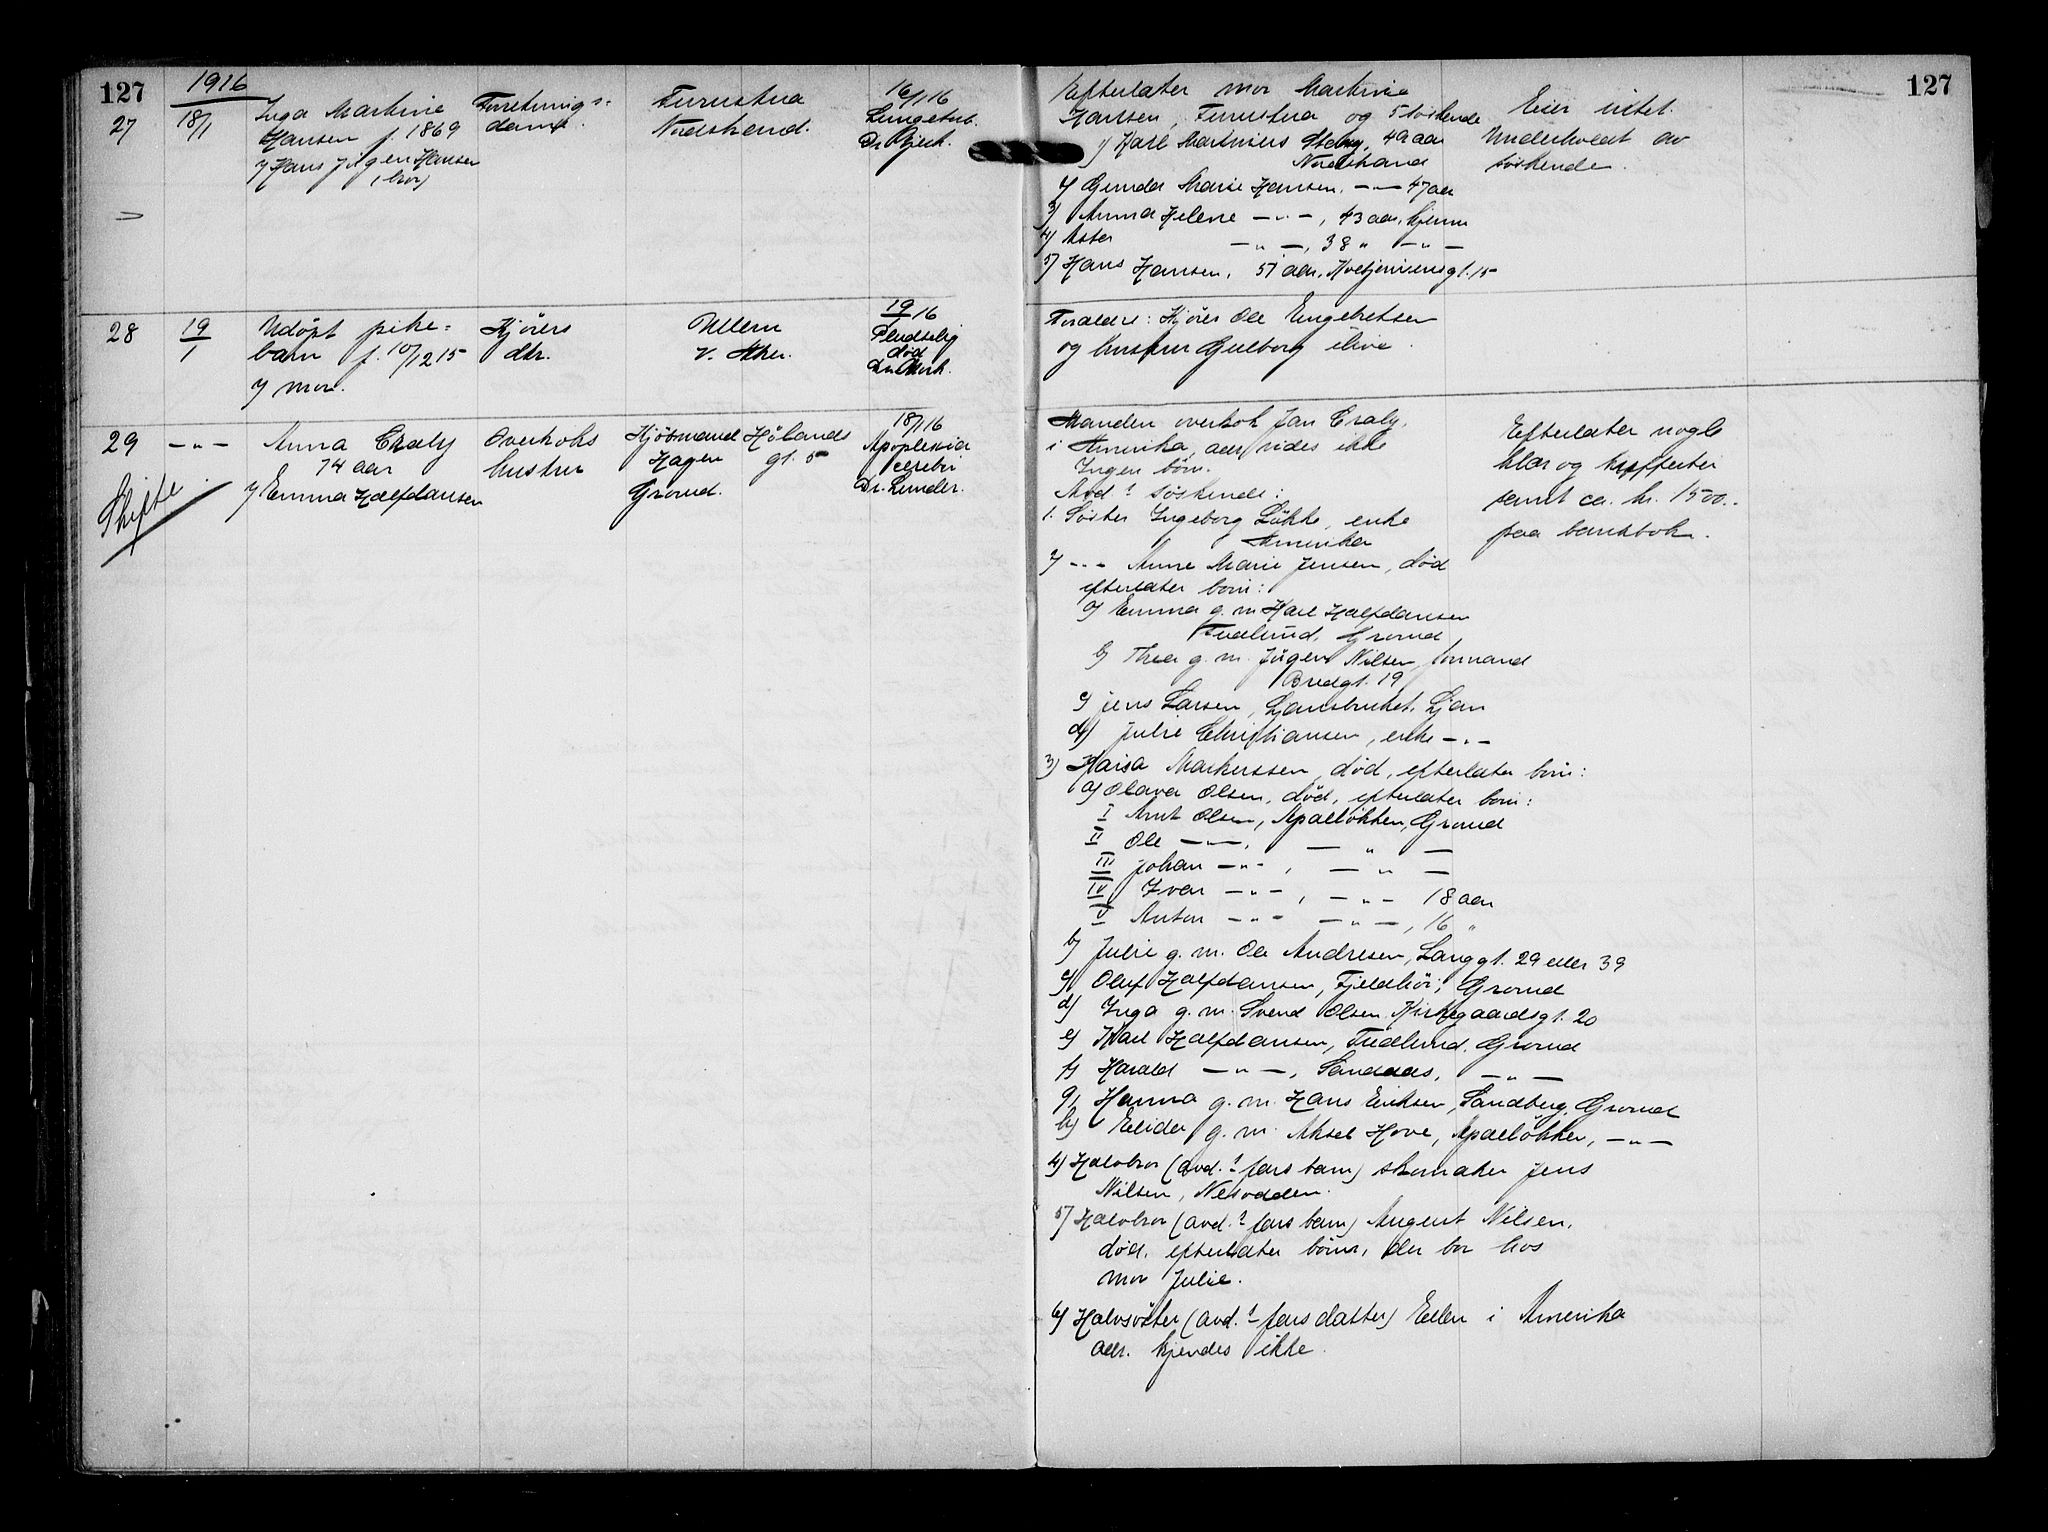 127
1916
27
18/1
Inga Martine
Hansen f. 1869
v/ Hans Jörgen Hansen
(bror)
Forretnings-
dame.
Furustua
Nordstrand.
16/1 16
Lungetub.
Dr.
28
19/1
Udöpt pike-
barn f. 10/12 15
v/ mor.
Kjörers
dtr.
Ullern
V. Aker.
19/1 16
Pludselig
död
Dr. Mork.
29
- " -
Skifte
Anna Craly
74 aar
v/ Emma Halfdansen
Overkoks
hustru
Kjöbmand
Hagen
Grorud.
Hölands
gt. 5
18/1 16
Apoplexia
cerebri
Dr. Lunder.
127
Efterlater mor Martine
Hansen, Furustua og 5 söskende
1) Karl Martinius 49 aar
Nordstrand
2) Gunda Marie Hansen, - " - 47 aar
3) Anna Helene - " -, 43 aar, hjemme
4) Aster - " -, 38 " - " -
5) Hans Hansen, 51 aar, gt. 15
Eier intet.
Underholdt av
söskende.
Forældre: Kjörer Ole Engebretsen
og hustru Gulborg ilive.
Manden overkok Jan Craly,
i Amerika, adr. vides ikke
Ingen börn.
Avd? söskende:
1. Söster Ingeborg Lökke, enke
Amerika
2) - " - Anne Marie Jensen, död
efterlater börn:
a) Emma g. m. Karl Halfdansen
Fredlund, Grorud
b) Thea g. m. Jörgen Nilsen, formand
Bredgt. 19
c) Jens Larsen, Ljansbruket, Ljan
d) Julie Christiansen, enke - " -
3) Kaisa Markussen, död, efterlater börn:
a) Olava Olsen, död, efterlater börn:
I Arnt Olsen, Apallökken, Grorud
II Ole - " -, - " -
III Johan - " -, - " -
IV Ivar - " -, - " - 18 aar
V Anton - " - - " -, 16 "
b) Julie g. m. Ole Andresen, Langgt. 29 eller 39
c) Oluf Halfdansen, Fjeldhöi, Grorud
d) Inga g. m. Svend Olsen Kirkegaardsgt. 20
e) Karl Halfdansen, Fredlund, Grorud
f) Harald - " -, Sandaas, - " -
g) Hanna g. m. Hans Eriksen, Sandberg, Grorud
h) Elida g. m. Aksel Hove, Apallökken, - " -
4) Halvbror (avd.? fars barn) skomaker Jens
Nilsen, Nesodden.
5) Halvbror (avd.? fars barn) August Nilsen,
död, efterlater börn, der bor hos
mor Julie.
6) Halvsöster (avd.? fars datter) Ellen i Amerika
adr. kjendes ikke.
Efterlater nogle
klær og kufferter
samt ca. kr. 1500.-
paa bankbok.